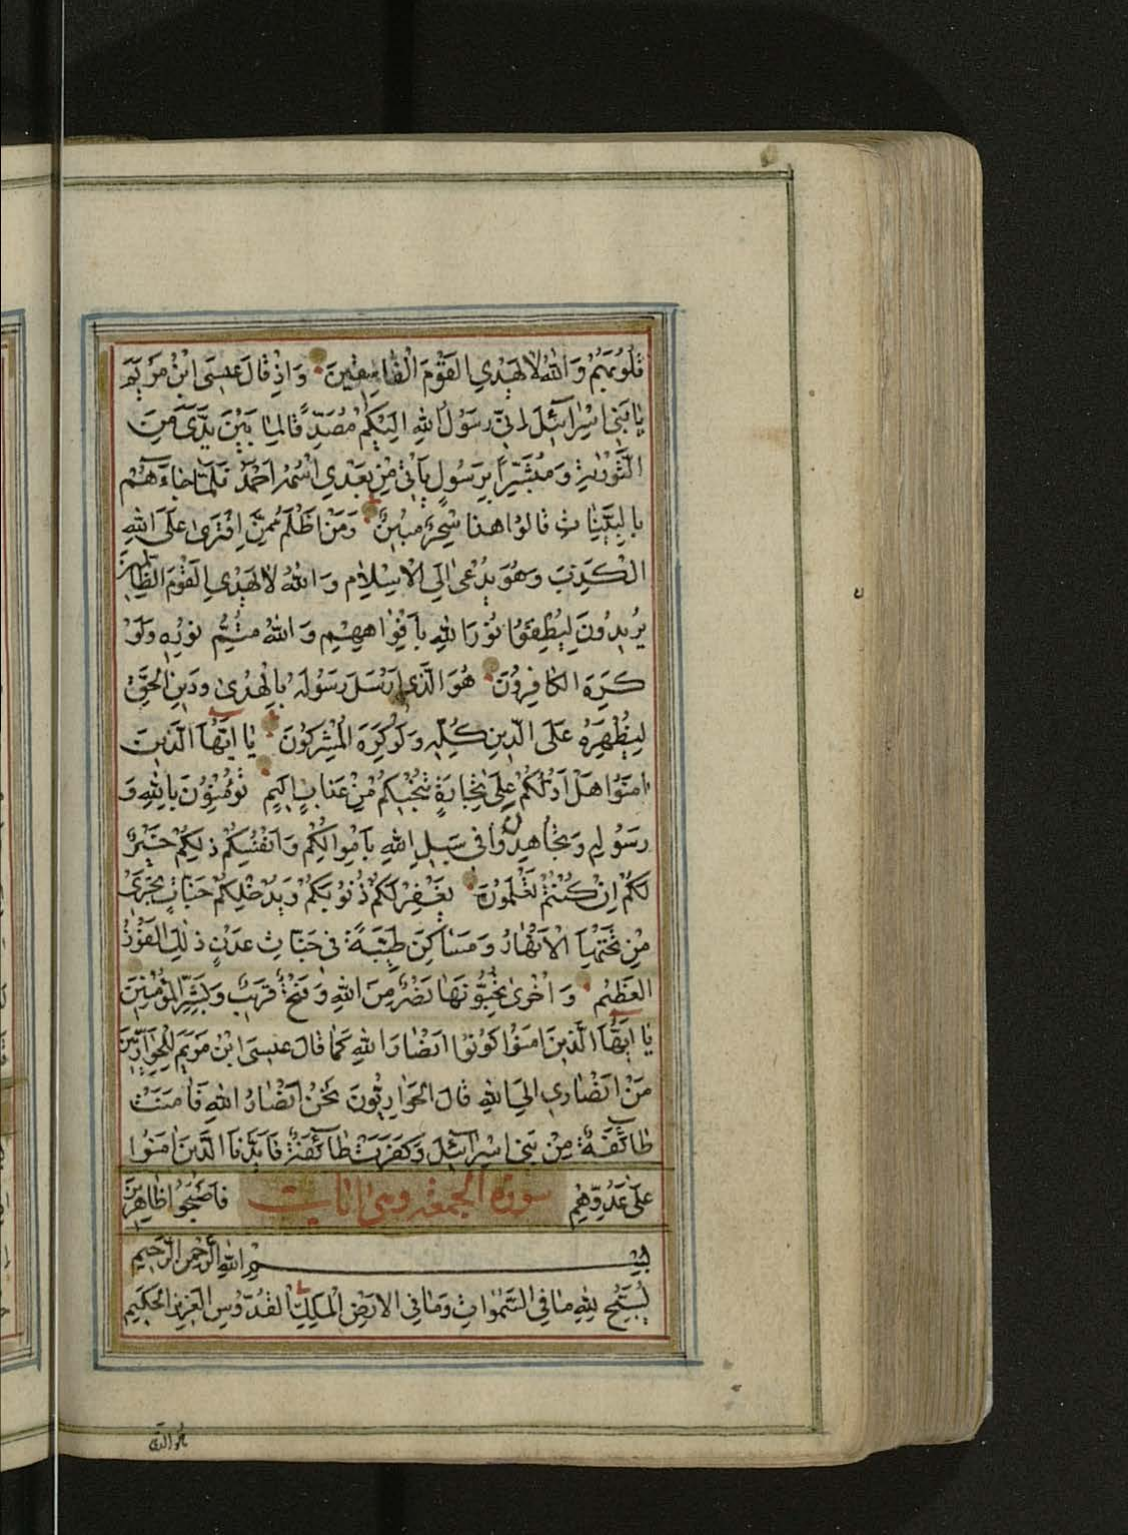 قُلُوبَهُمْ وَاللهُ لَا يَهْدِي الْقَوْمَ الْفَاسِقِينَ وَاِذْ قَالَ عِيسَى ابْنُ مَرْيَمَ
يَا بَنِي اِسْرَائِلَ اِنِّي رَسُولُ اللهِ اِلَيْكُمْ مُصَدِّقًا لِمَا بَيْنَ يَدَيَّ مِنَ
التَّوْرٰيةِ وَمُبَشِّرًا بِرَسُولٍ يَأْتِي مِنْ بَعْدِي اسْمُهُ اَحْمَدُ فَلَمَّا جَاءَهُمْ
بِالْبَيِّنَاتِ قَالُوا هٰذَا سِحْرٌ مُبِينٌ وَمَنْ اَظْلَمُ مِمَّنِ افْتَرٰى عَلَى اللهِ
الْكَذِبَ وَهُوَ يُدْعٰى اِلَى الْاِسْلَامِ وَاللهُ لَا يَهْدِي الْقَوْمَ الظَّالِمِينَ
يُرِيدُونَ لِيُطْفِؤُا نُورَ اللهِ بِاَفْوَاهِهِمْ وَاللهُ مُتِمُّ نُورِهِ وَلَوْ
كَرِهَ الْكَافِرُونَ هُوَ الَّذِي اَرْسَلَ رَسُولَهُ بِالْهُدٰى وَدِينِ الْحَقِّ
لِيُظْهِرَهُ عَلَى الدِّينِ كُلِّهِ وَلَوْ كَرِهَ الْمُشْرِكُونَ يَا اَيُّهَا الَّذِينَ
اٰمَنُوا هَلْ اَدُلُّكُمْ عَلٰى تِجَارَةٍ تُنْجِيكُمْ مِنْ عَذَابٍ اَلِيمٍ تُؤْمِنُونَ بِاللهِ وَ
رَسُولِهِ وَتُجَاهِدُونَ فِي سَبِيلِ اللهِ بِاَمْوَالِكُمْ وَاَنْفُسِكُمْ ذٰلِكُمْ خَيْرٌ
لَكُمْ اِنْ كُنْتُمْ تَعْلَمُونَ يَغْفِرْ لَكُمْ ذُنُوبَكُمْ وَيُدْخِلْكُمْ جَنَّاتٍ تَجْرِي
مِنْ تَحْتِهَا الْاَنْهَارُ وَمَسَاكِنَ طَيِّبَةً فِي جَنَّاتِ عَدْنٍ ذٰلِكَ الْفَوْزُ
الْعَظِيمُ وَاُخْرٰى تُحِبُّونَهَا نَصْرٌ مِنَ اللهِ وَفَتْحٌ قَرِيبٌ وَبَشِّرِ الْمُؤْمِنِينَ
يَا اَيُّهَا الَّذِينَ اٰمَنُوا كُونُوا اَنْصَارَ اللهِ كَمَا قَالَ عِيسَى ابْنُ مَرْيَمَ لِلْحَوَارِيِّينَ
مَنْ اَنْصَارِي اِلَى اللهِ قَالَ الْحَوَارِيُّونَ نَحْنُ اَنْصَارُ اللهِ فَاٰمَنَتْ
طَائِفَةٌ مِنْ بَنِي اِسْرَائِلَ وَكَفَرَتْ طَائِفَةٌ فَاَيَّدْنَا الَّذِينَ اٰمَنُوا
عَلٰى عَدُوِّهِمْ سورة الجمعة وهى ايات فَاَصْبَحُوا ظَاهِرِينَ
بِسْمِ اللهِ الرَّحْمٰنِ الرَّحِيمِ
يُسَبِّحُ لِلهِ مَا فِي السَّمٰوَاتِ وَمَا فِي الْاَرْضِ الْمَلِكِ الْقُدُّوسِ الْعَزِيزِ الْحَكِيمِ
هُوَ الَّذِي